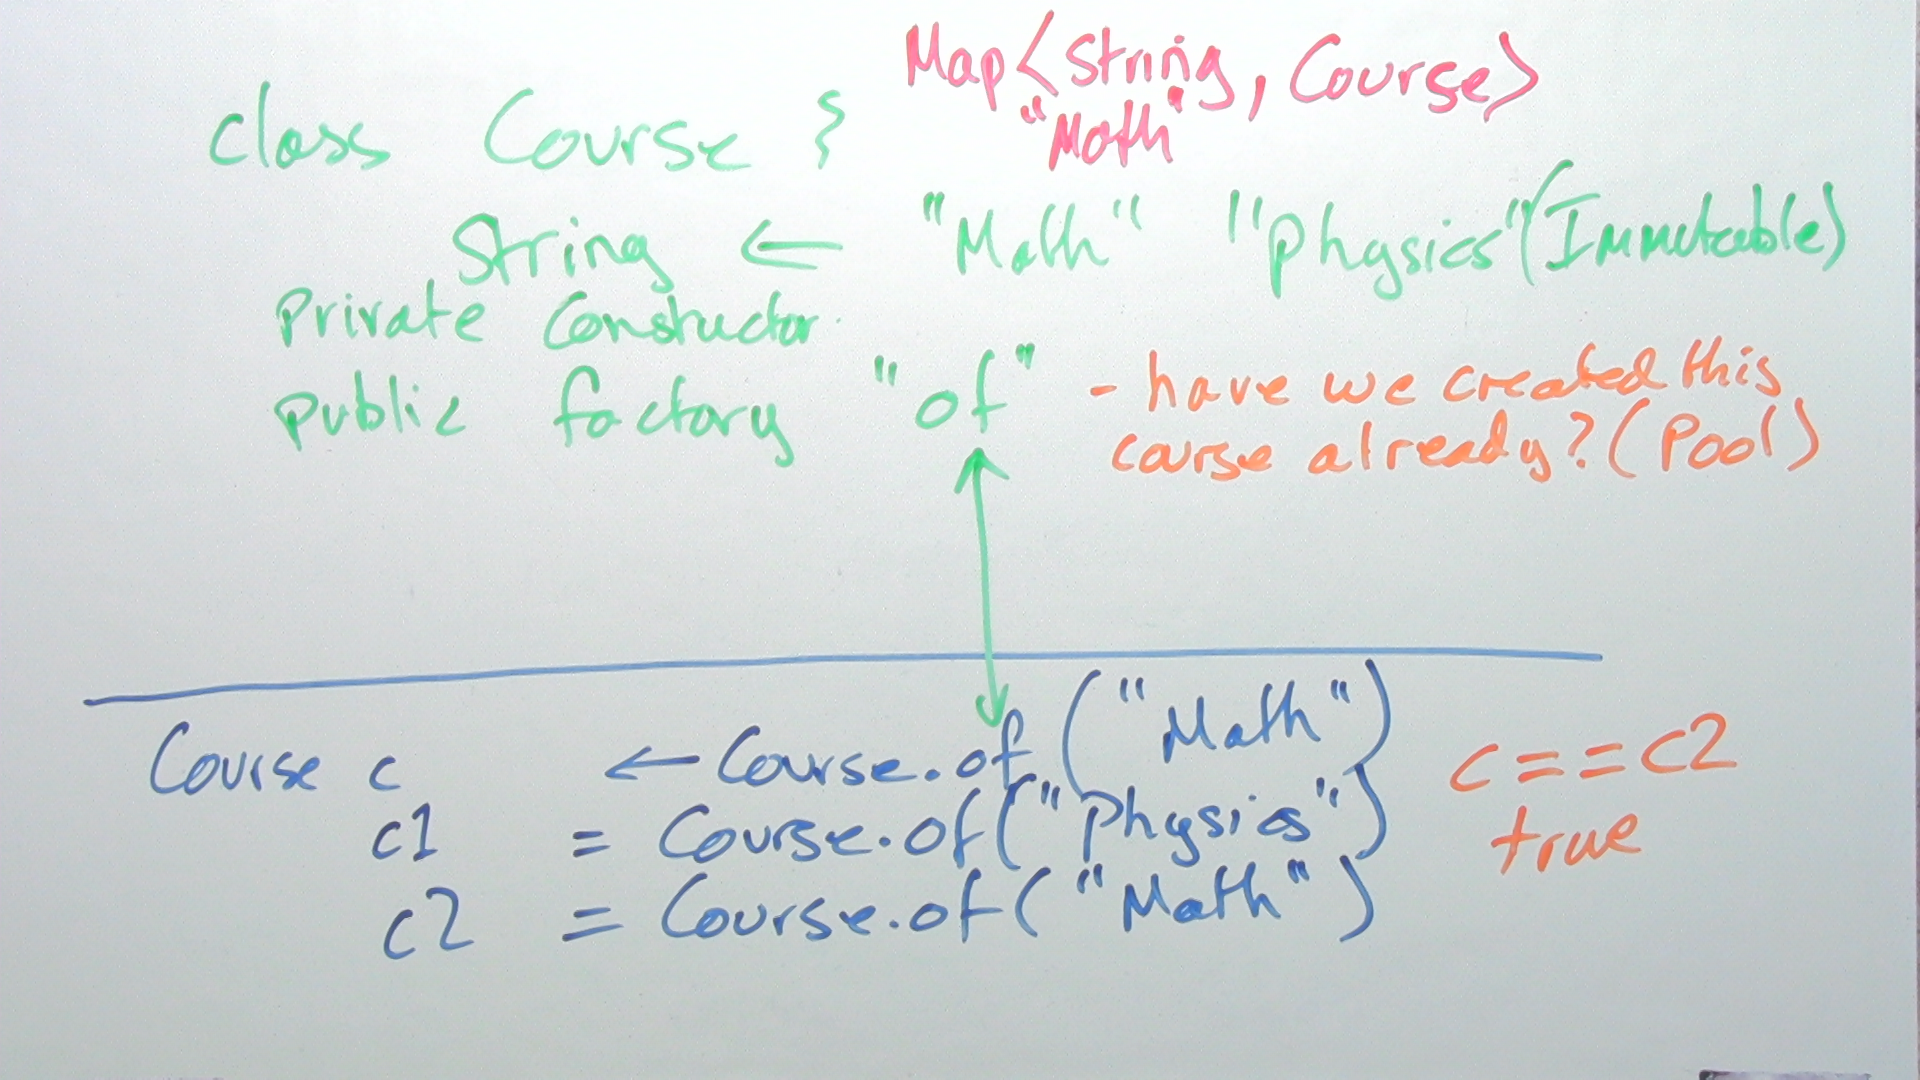 Map<String, Course>
"Math"
class Course {
String ← "Math" "Physics" (Immutable)
Private Constuctor.
public factory "of" - have we created this
course already? (Pool)
Course c ← Course.of("Math")
c1 = Course.of("Physics")
c2 = Course.of("Math")
c==c2
true